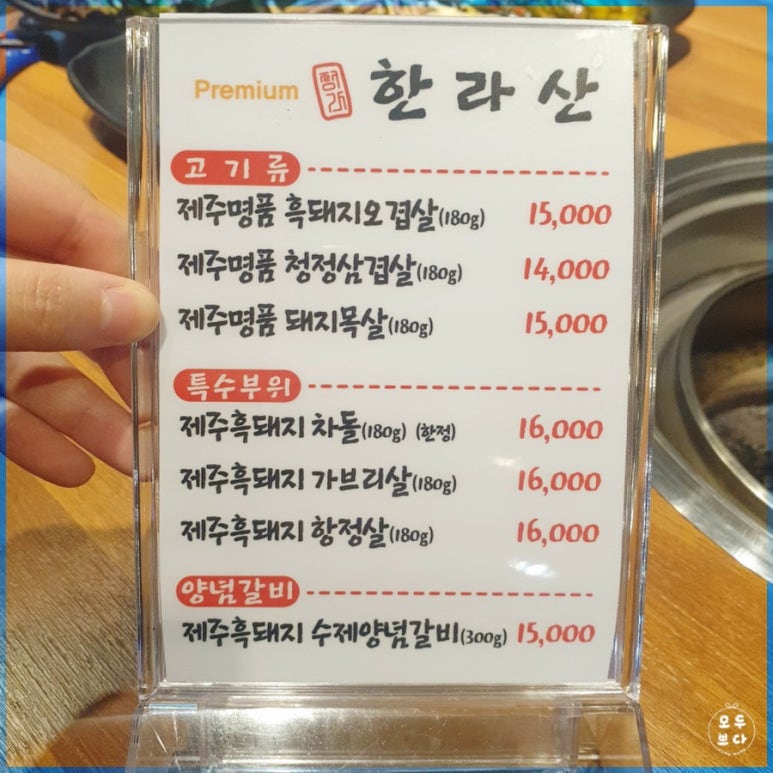 Premium 한라산
고기류
제주명품 흑돼지오겹살(180g) 15,000
제주명품 청정삼겹살(180g) 14,000
제주명품 돼지목살(180g) 15,000
특수부위
제주흑돼지 차돌(180g) (한정) 16,000
제주흑돼지 가브리살(180g) 16,000
제주흑돼지 항정살(180g) 16,000
양념갈비
제주흑돼지 수제양념갈비(300g) 15,000
모두
쁘다